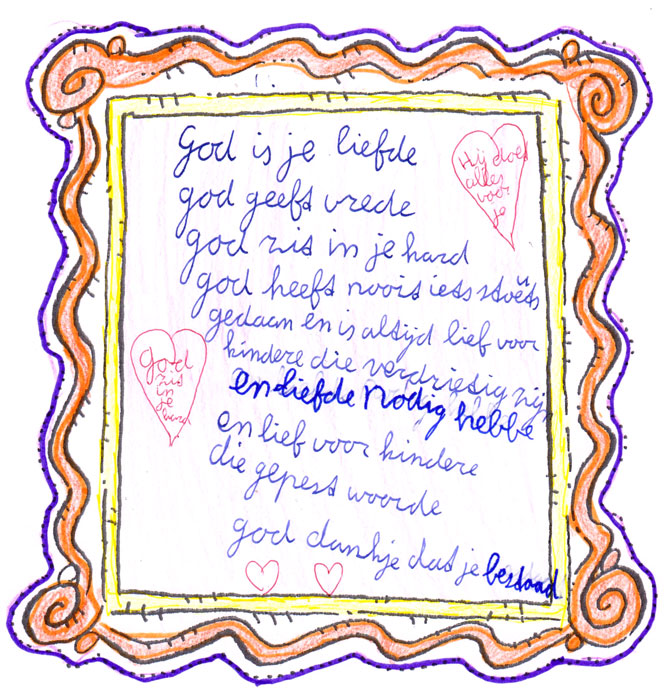 God is je liefde
god geeft vrede
god zit in je hard
god heeft nooit iets stoëts
gedaan en is altijd lief voor
kindere die verdrietig zijn
en liefde nodig hebbe
en lief voor kindere
die gepest woorde
god dankje dat je bestaad
Hij doet
alles
voor
je
God
zit
in
je
hard